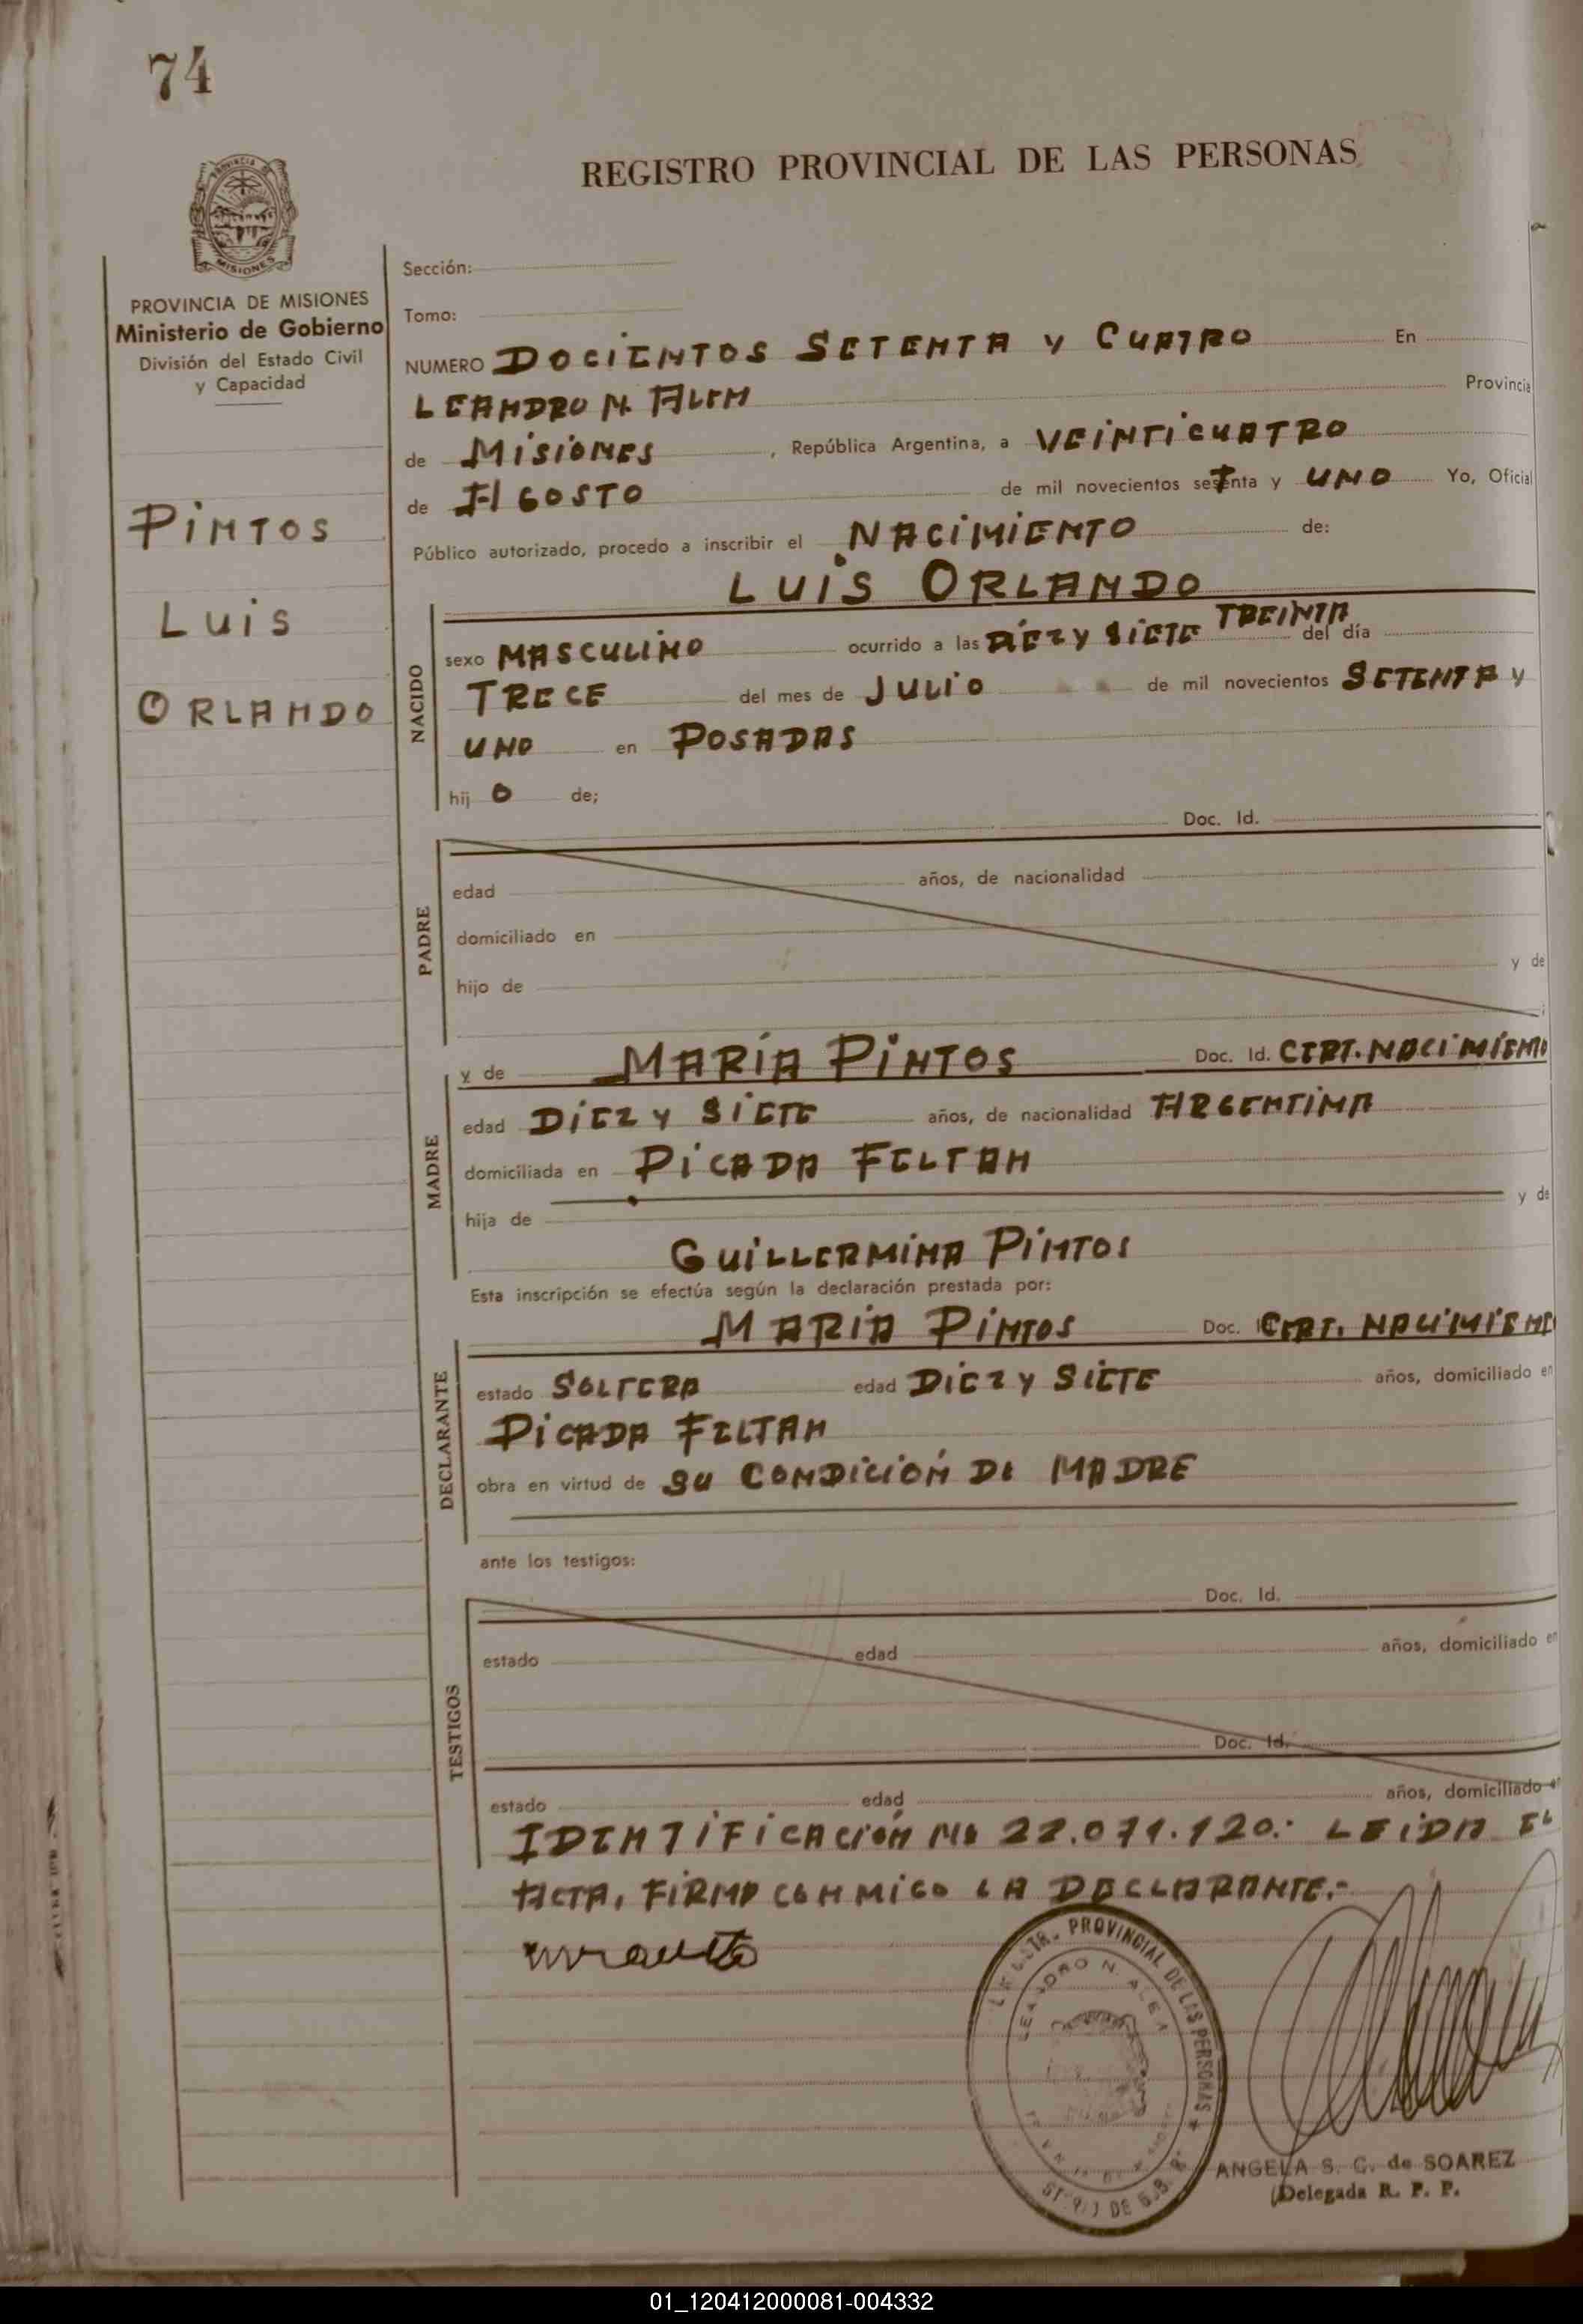 74
REGISTRO PROVINCIAL DE LAS PERSONAS
PROVINCIA
MISIONES
PROVINCIA DE MISIONES
Ministerio de Gobierno
División del Estado Civil
y Capacidad
PINTOS
LUIS
ORLANDO
Sección:
Tomo:
NUMERO DOCIENTOS SETENTA Y CUATRO En
LEANDRO N. ALEM Provincia
de MISIONES, República Argentina, a VEINTICUATRO
de AGOSTO de mil novecientos setenta y UNO Yo, Oficial
Público autorizado, procedo a inscribir el NACIMIENTO de:
LUIS ORLANDO
NACIDO
sexo MASCULINO ocurrido a las DIEZ Y SIETE TREINTA del día
TRECE del mes de JULIO de mil novecientos SETENTA Y
UNO en POSADAS
hij O de;
PADRE
Doc. Id.
edad años, de nacionalidad
domiciliado en
hijo de y de
MADRE
y de MARÍA PINTOS Doc. Id. CERT. NACIMIENTO
edad DIEZ Y SIETE años, de nacionalidad ARGENTINA
domiciliada en PICADA FELTAN
hija de y de
GUILLERMINA PINTOS
Esta inscripción se efectúa según la declaración prestada por:
DECLARANTE
MARIA PINTOS Doc. CERT. NACIMIENT
estado SOLTERA edad DIEZ Y SIETE años, domiciliado en
PICADA FELTAN
obra en virtud de SU CONDICIÓN DE MADRE
ante los testigos:
TESTIGOS
Doc. Id.
estado edad años, domiciliado en
Doc. Id.
estado edad años, domiciliado en
IDENTIFICACIÓN No 22.071.120.- LEIDA EL
ACTA, FIRMA CONMIGO LA DECLARANTE.-
PROVINCIAL DE LAS PERSONAS
LEANDRO N. ALEM
ANGELA S. G. de SOAREZ
Delegada R. P. P.
01_120412000081-004332